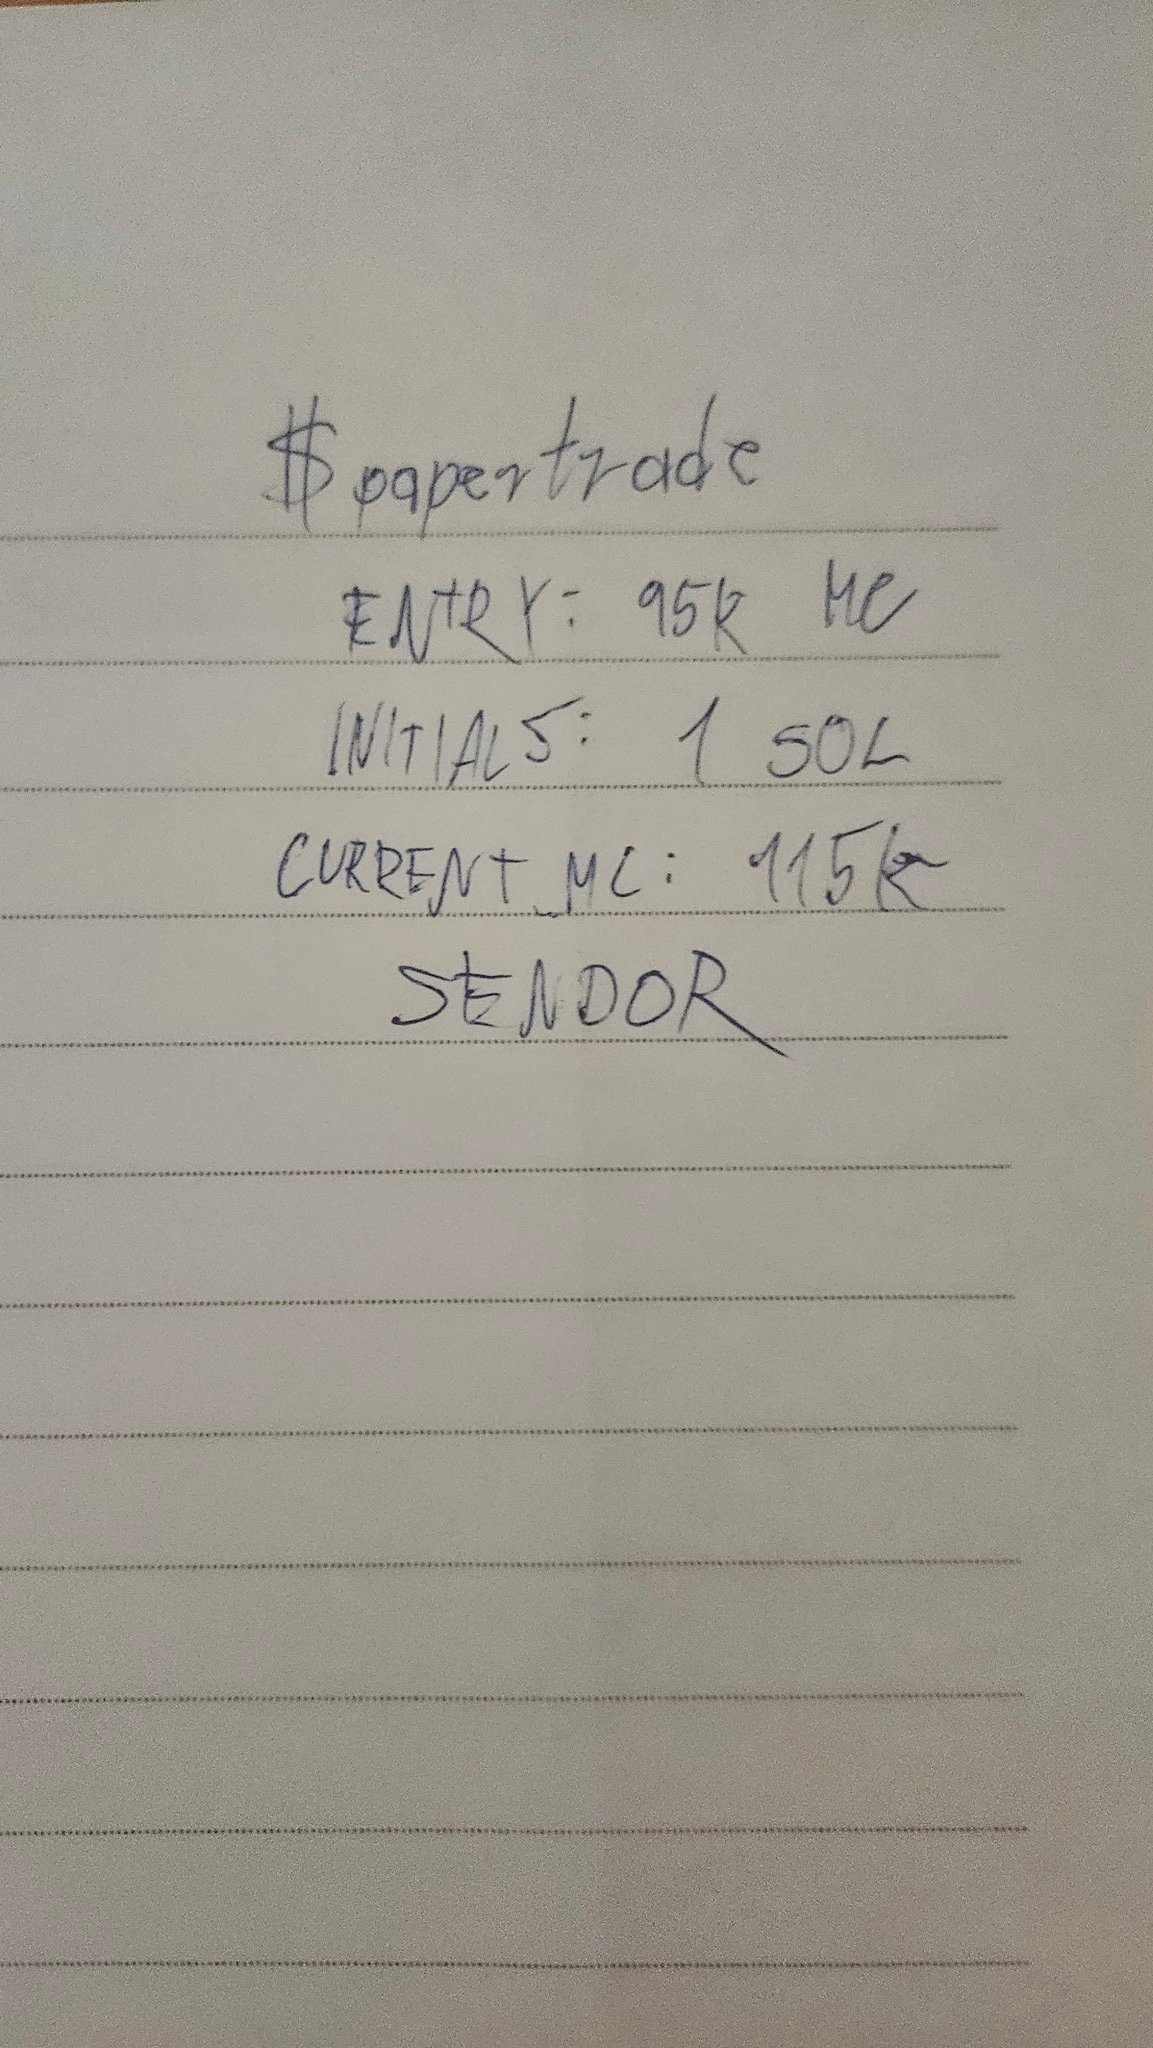 $papertrade
ENTRY: 95k MC
INITIALS: 1 SOL
CURRENT MC: 115k
SENDOR